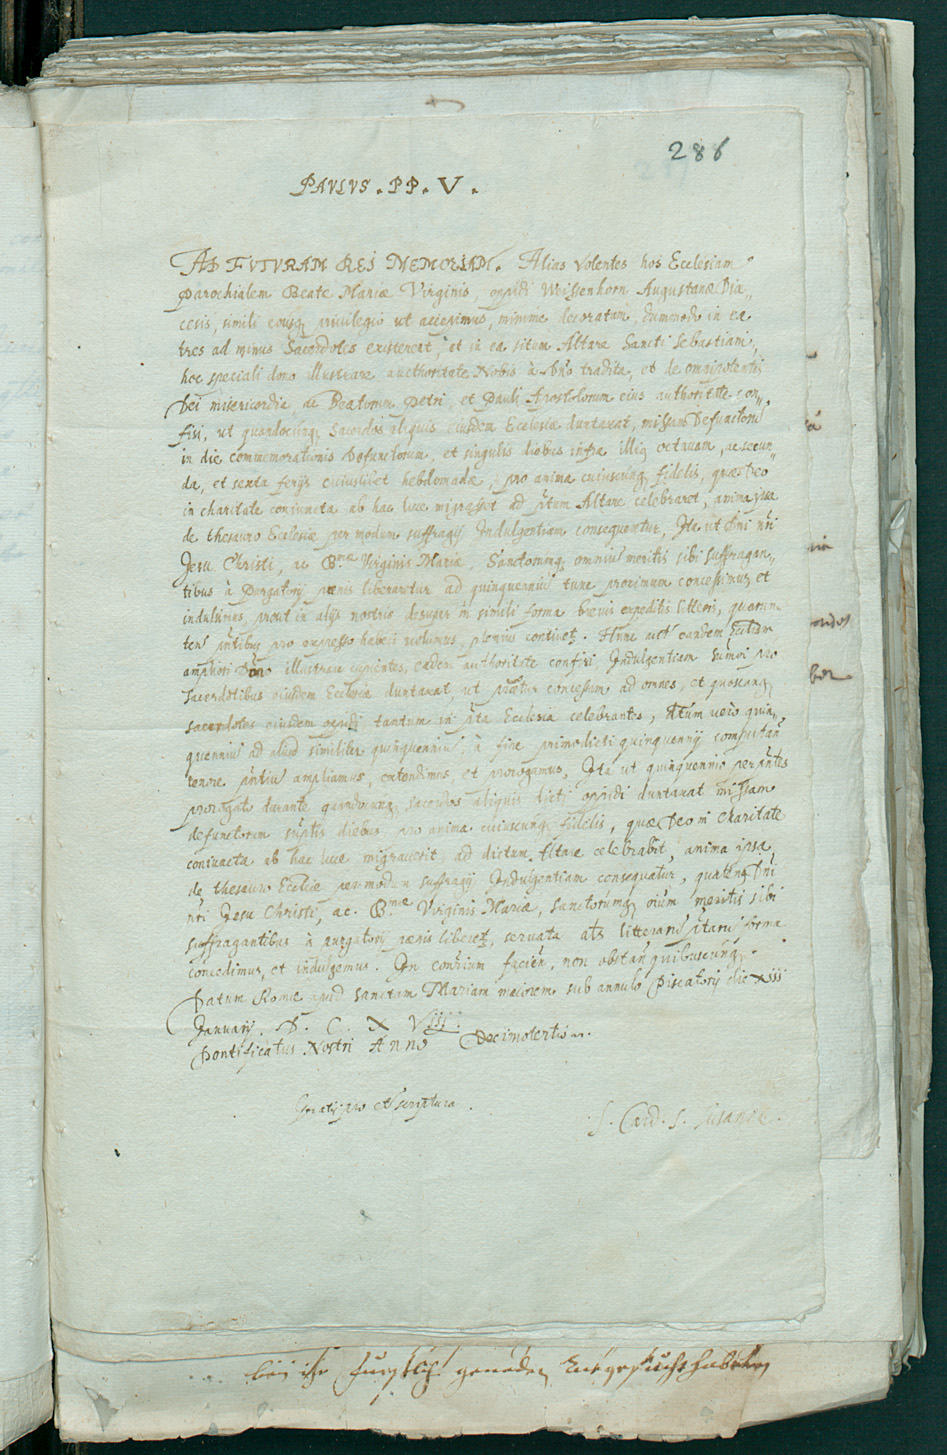 286
PAULUS . PP . V .
AD FUTURAM REI MEMORIAM. Alias volentes hos Ecclesiam
Parochialem Beate Mariæ Virginis, oppidi Weissenhorn Augustanæ Diæ„
cesis, simili eousq privilegio ut accepimus, minime decoratam, dummodo in ea
tres ad minus Sacerdotes existerent, et in ea situm Altare Sancti Sebastiani,
hoc speciali dono illustrare aucthoritate Nobis à Dño tradita, et de omnipotentis
Dei misericordia, ac Beatorum Petri, et Pauli Apostolorum eius authoritate con„
fisi, ut quandocunq Sacerdos aliquis eiusdem Ecclesiæ duntaxat, missam Defunctorũ
in die commemorationis Defunctorum, et singulis diebus infra illiq octauam, ac secun„
da, et sexta ferijs cuiuslibet hebdomadæ, pro anima cuiuscunq fidelis, quæ Deo
in charitate coniuncta ab hac luce migrasset ad ptum Altare celebraret, anima ipsa
de thesauro Ecclesiæ per modum suffragij Indulgentiam consequeretur, Ita ut Dñi nři
Jesu Christi, ac B.mæ Virginis Mariæ, Sanctorumq omniũ meritis sibi suffragan„
tibus à Purgatorij pænis liberaretur ad quinquenniũ tunc proximum concessimus et
indulsimus, prout in alijs nostris desuper in simili forma brevis expeditis litteris, quorum
teñ pñtibus pro expresso haberi volumus, plenius continetꝫ. Nunc eandem Ecclam
ampliori dono illustrare cupientes, eadem authoritate confisi, Indulgentiam pro
sacerdotibus eiusdem Ecclesiæ duntaxat, ut præfertur concessam ad omnes, et quoscunq
sacerdotes eiusdem oppidi tantum in pta Ecclesia celebrantes, quin„
quenniũ ad aliud similiter quinquenniũ à fine primodicti quinquennij computañ
tenore pñtiũ ampliamus, extendimus, et prorogamus, Ita ut quinquennio per pñtes
prorogato durante quandocunq sacerdos aliquis dicti oppidi duntaxat missam
defunctorum diebus pro anima cuiuscunq fidelis, quæ Deo in charitate
coniuncta ab hac luce migraverit ad dictum Altare celebrabit, anima ipsa
de thesauro Ecclæ per modum suffragij Indulgentiam consequatur, quatenq Dñi
nři Jesu Christi, ac. B.mæ Virginis Mariæ, Sanctorumq oium meritis sibi
suffragantibus à purgatorij pænis liberetꝫ, servata litterarũ ptarũ forma
concedimus, et indulgemus. In contrium facieñ, non obstañ quibuscunq.
Datum Romæ apud Sanctam Mariam maiorem sub annulo Piscatorij die XIII
Januarij. D. C. X VIII.
Pontificatus Nostri Anno Decimotertio.
Gratis pro et scriptura.
S. Card. S. Susannæ.